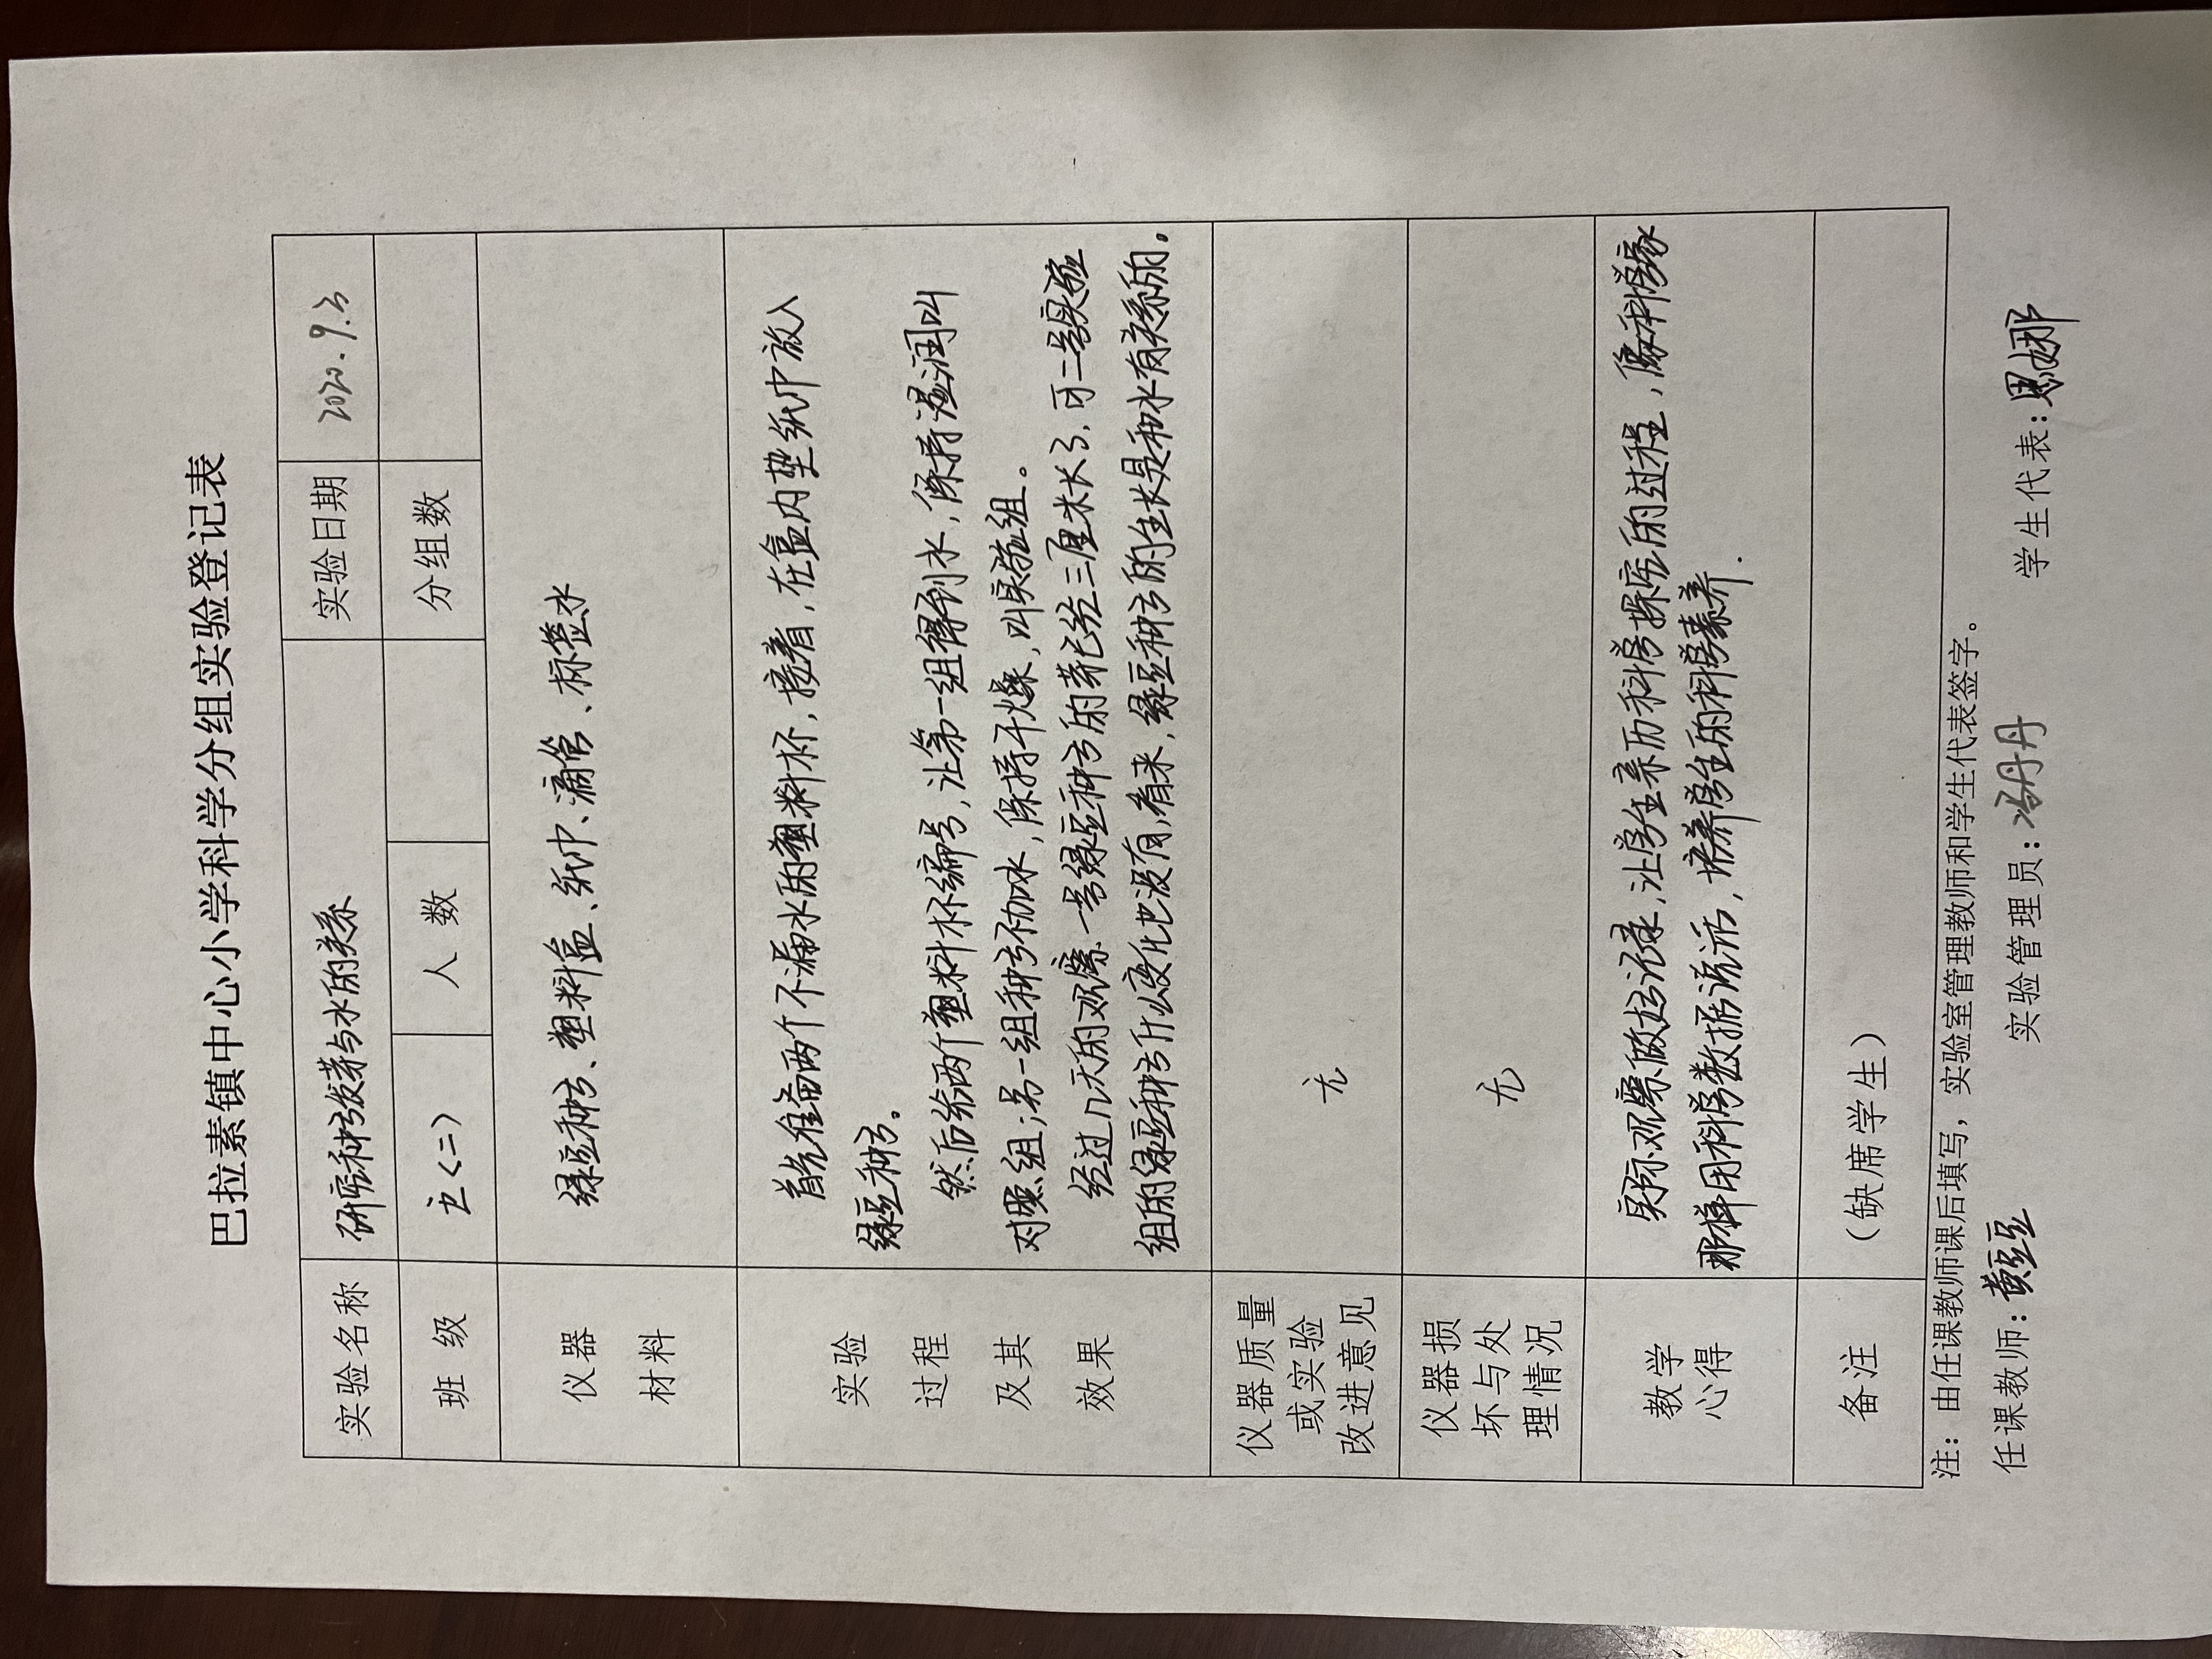 巴拉素镇中心小学科学分组实验登记表
实验名称 研究种子发芽与水的关系 实验日期 2020.9.3
班 级 五<二> 人 数 分组数
仪器
材料
绿豆种子、塑料盒、纸巾、滴管、标签水
实验
过程
及其
效果
首先准备两个不漏水的塑料杯,接着,在盒内垫纸巾放入
绿豆种子。
然后给两个塑料杯编号,让第一组得到水,保持湿润叫
对照组;另一组种子不加水,保持干燥,叫实验组。
经过几天的观察一号绿豆种子的芽已经三厘米长了,可二号实验
组的绿豆种子什么变化也没有,看来,绿豆种子的生长是和水有关系的。
仪器质量
或实验
改进意见
无
仪器损
坏与处
理情况
无
教学
心得
实际观察做好记录,让学生亲历科学探究的过程,像科学家
那样用科学数据说话,培养学生的科学素养.
备注 (缺席学生)
注:由任课教师课后填写,实验室管理教师和学生代表签字。
任课教师:黄豆豆 实验管理员:冯丹丹 学生代表:思娜